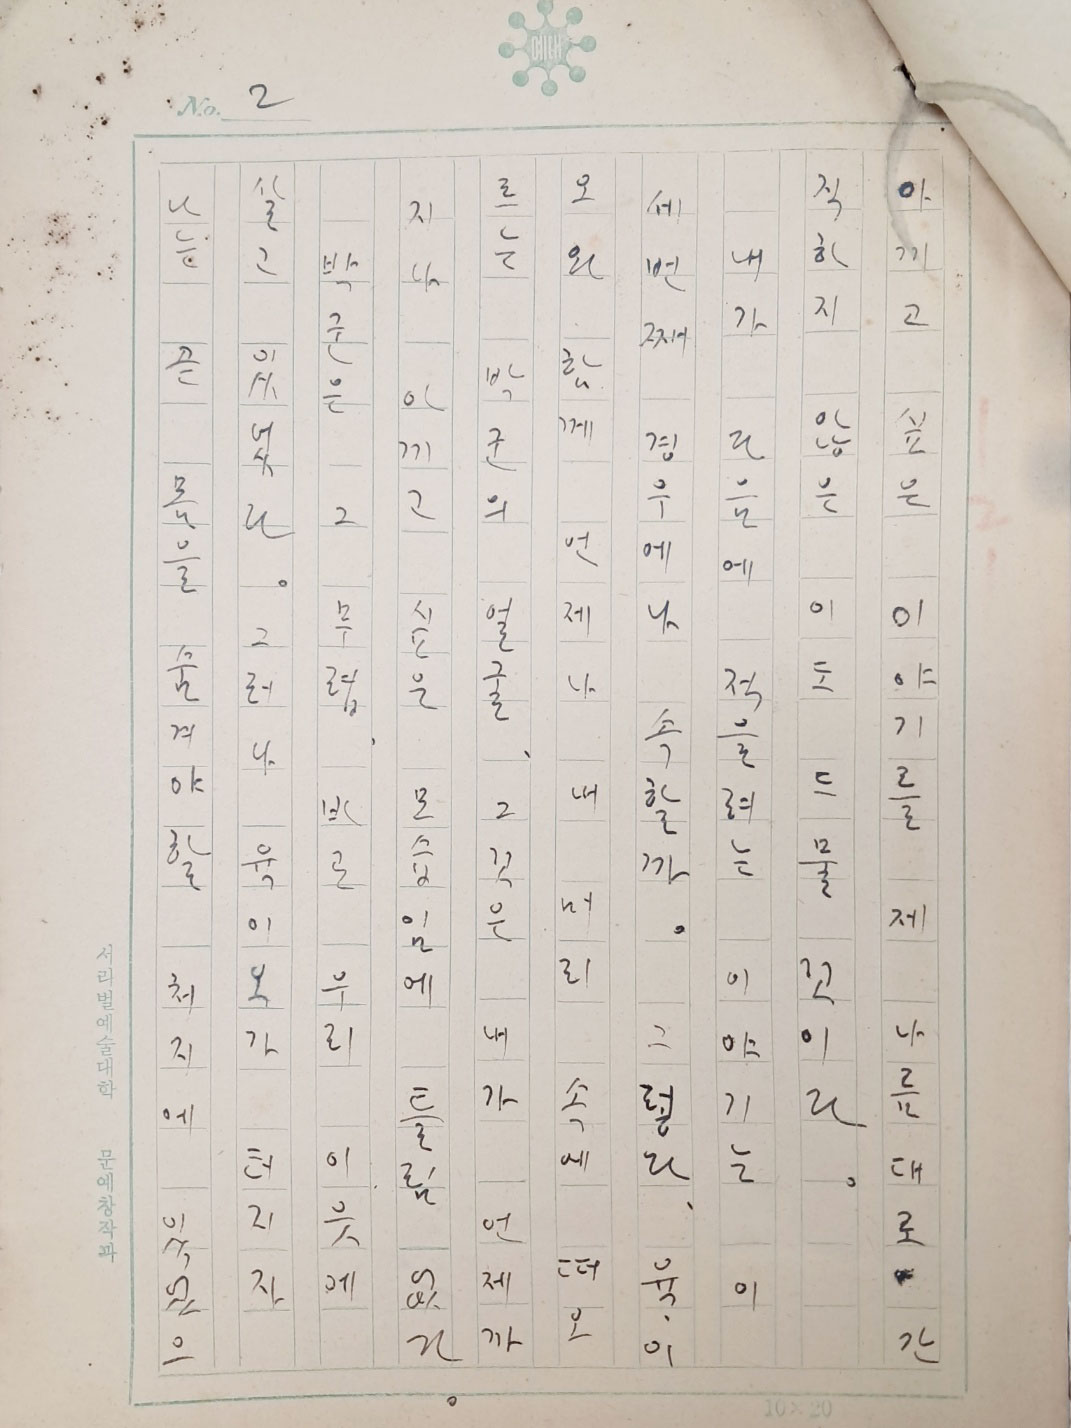 예대
No. 2
아끼고 싶은 이야기를 제 나름대로 간
직하지 않은 이도 드물 것이다.
내가 다음에 적을려는 이야기는 이
세번째 경우에나 속할까. 그렇다, 육·이
오와 함께 언제나 내 머리 속에 떠오
르는 박군의 얼굴, 그것은 내가 언제까
지나 아끼고 싶은 모습임에 틀림 없다.
박군은 그 무렵, 바로 우리 이웃에
살고 있었다. 그러나 육이오가 터지자
나는 곧 몸을 숨겨야할 처지에 있었으
서라벌예술대학 문예창작과
10×20